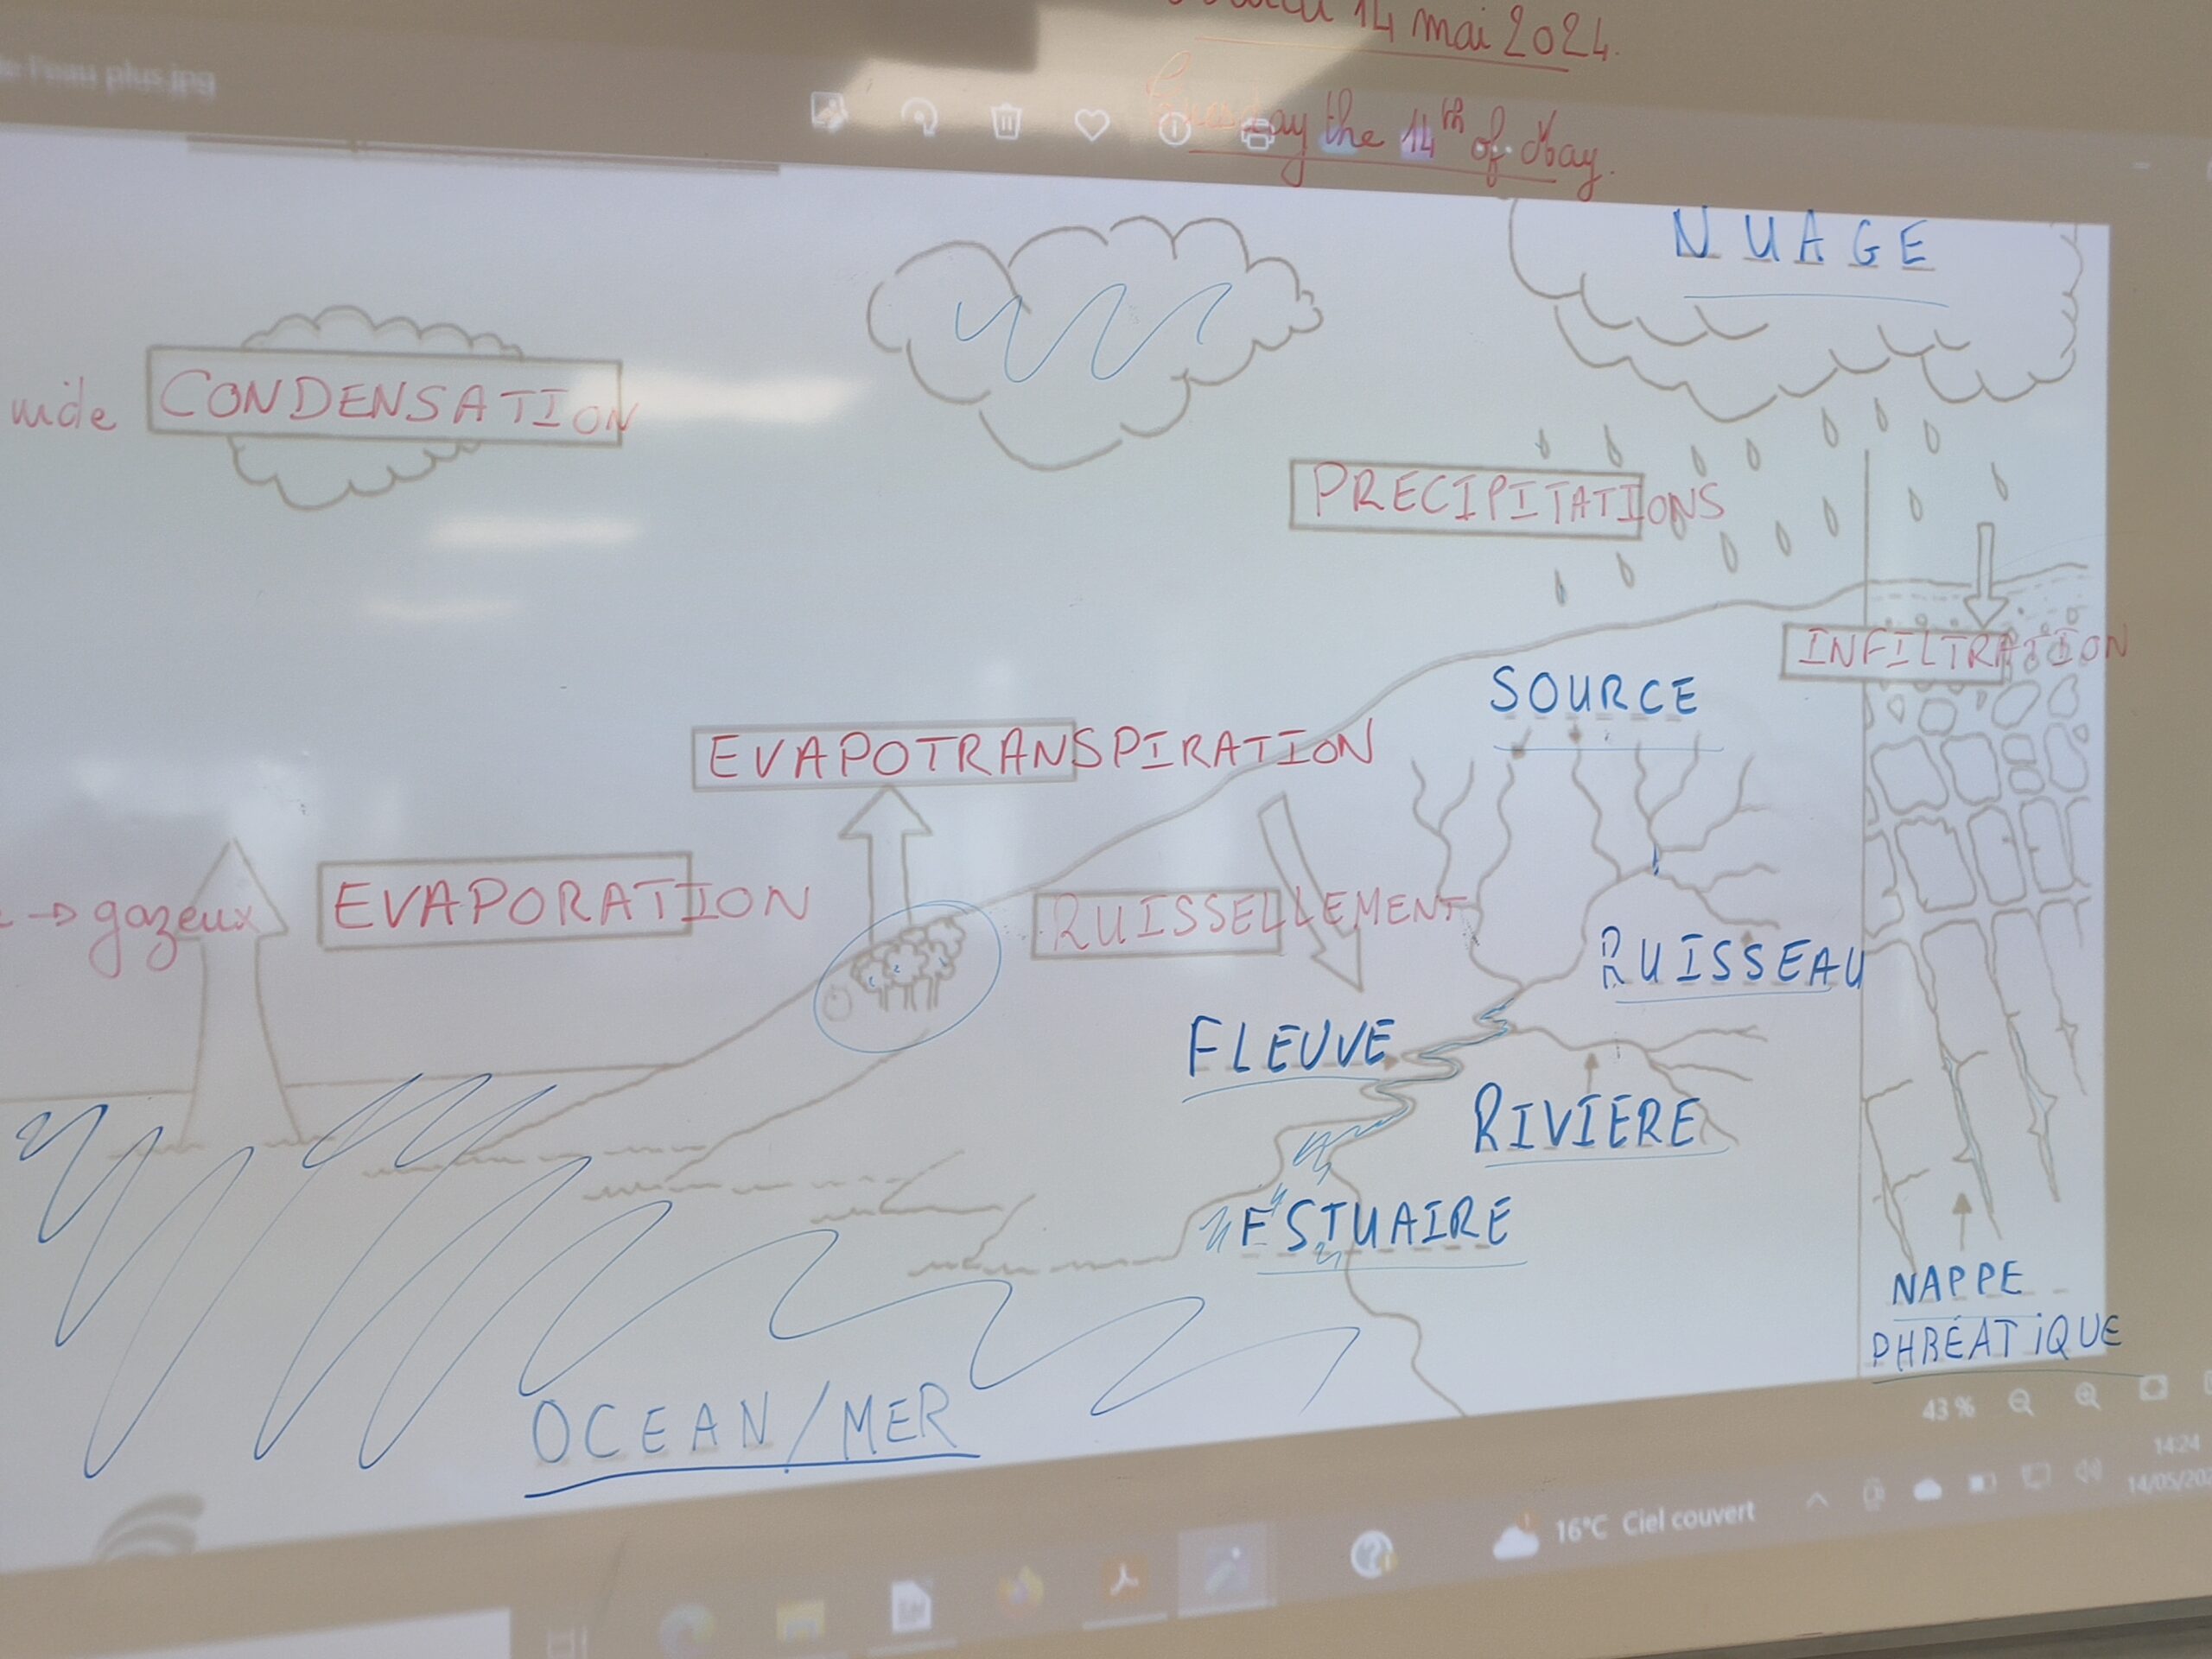 14 mai 2024.
l'eau plus.jpg
Tuesday the 14th of May.
NUAGE
CONDENSATION
PRECIPITATIONS
INFILTRATION
SOURCE
EVAPOTRANSPIRATION
→ gazeux
EVAPORATION
RUISSELLEMENT
RUISSEAU
FLEUVE
RIVIERE
ESTUAIRE
NAPPE
PHRÉATIQUE
OCEAN/MER
43 %
14:24
16°C Ciel couvert